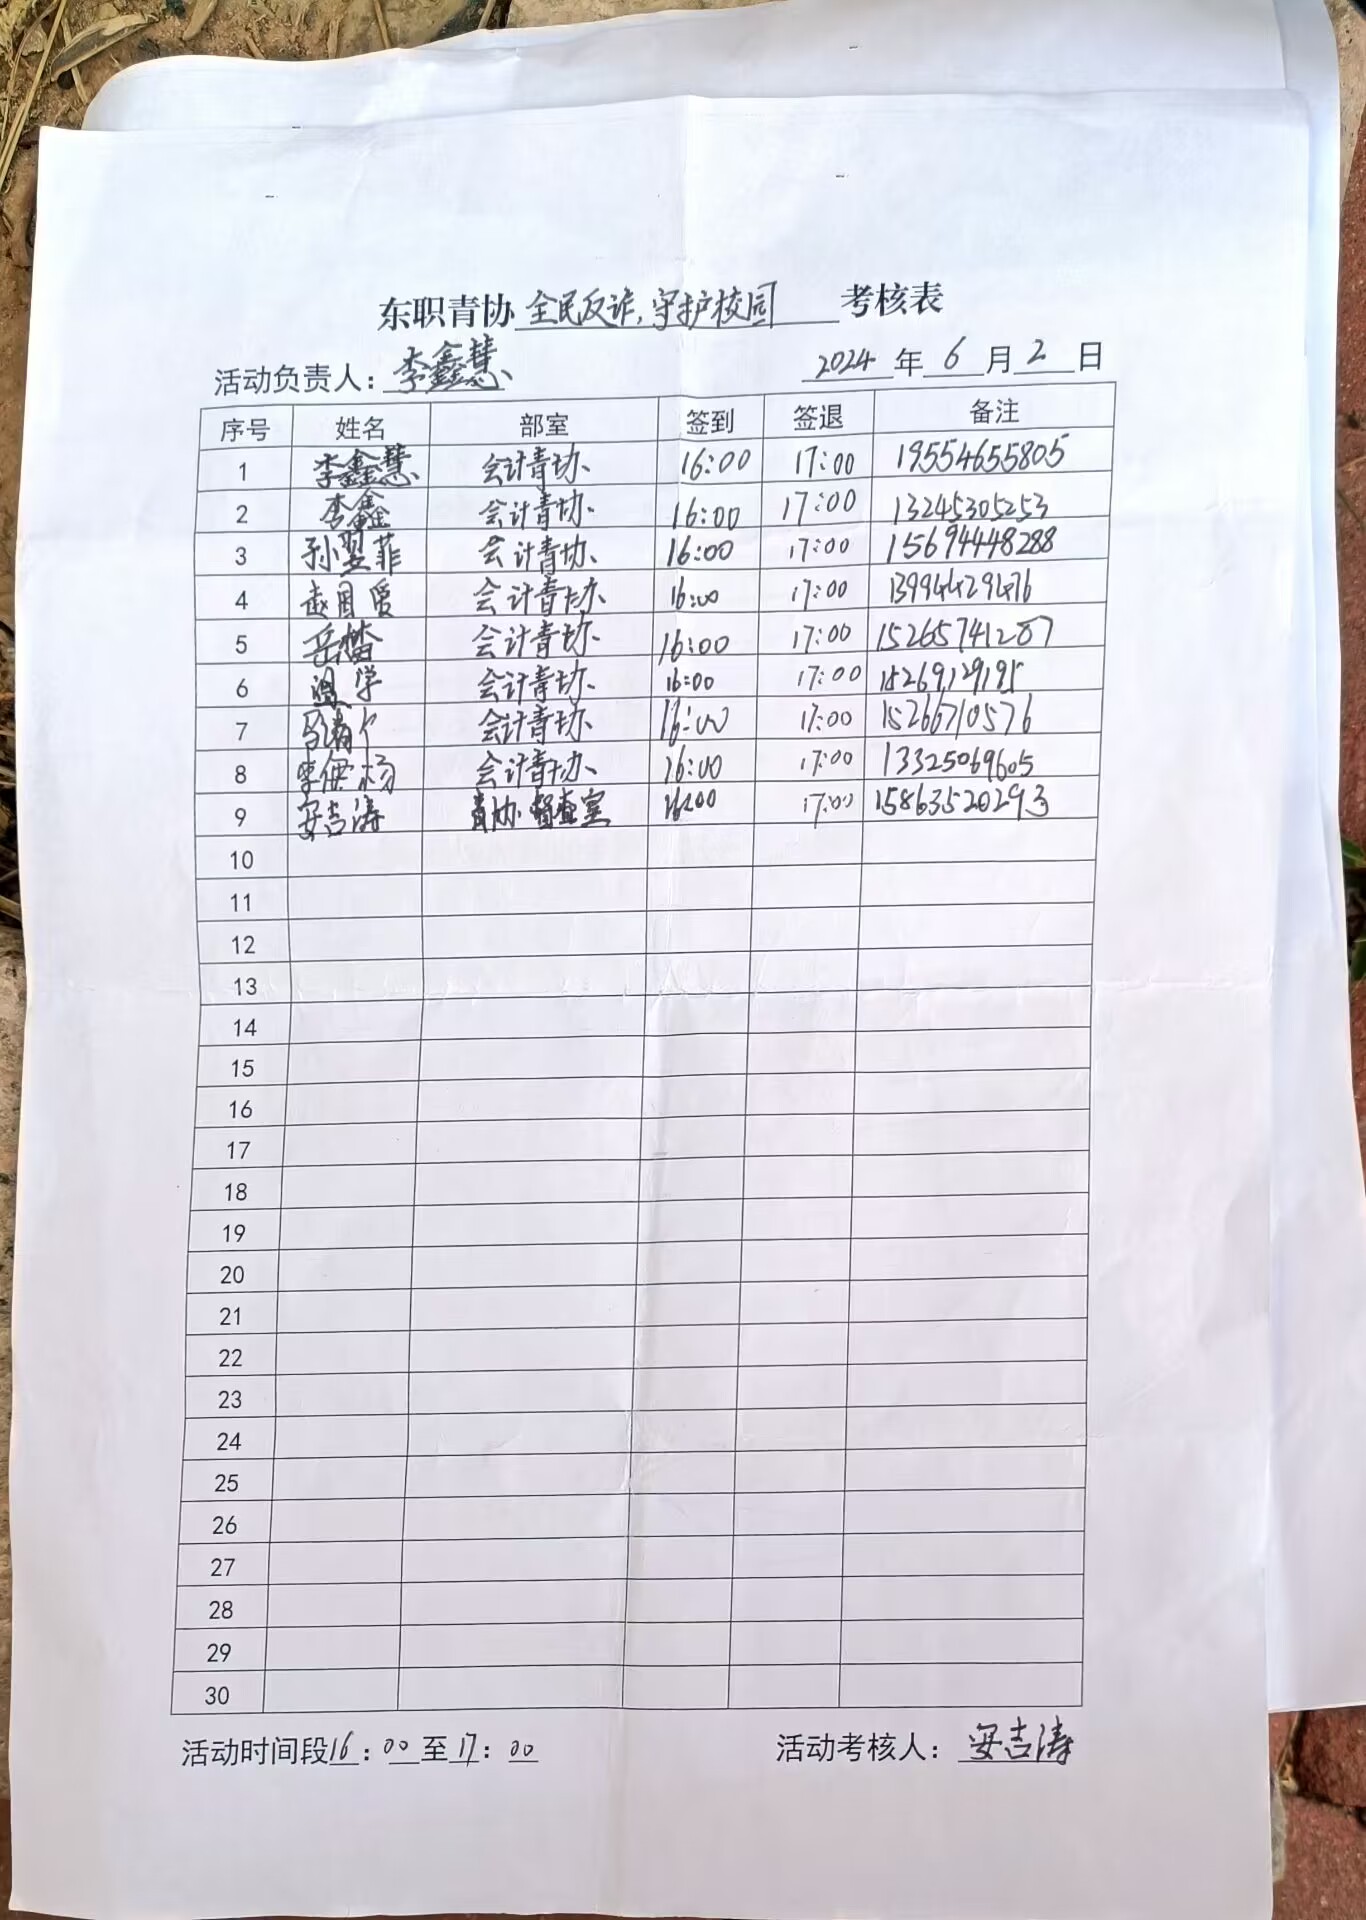 东职青协 全民反诈,守护校园 考核表
活动负责人: 李鑫慧 2024 年 6 月 2 日
序号 姓名 部室 签到 签退 备注
1 李鑫慧 会计青协 16:00 17:00 19554655805
2 李鑫 会计青协 16:00 17:00 13245305253
3 孙翌菲 会计青协 16:00 17:00 15694448288
4 会计青协 16:00 17:00 13994429476
5 会计青协 16:00 17:00 15265741207
6 会计青协 16:00 17:00
7 会计青协 16:00 17:00 15266710576
8 会计青协 16:00 17:00 13325069605
9 安吉涛 青协 督查室 16:00 17:00 15863520293
10
11
12
13
14
15
16
17
18
19
20
21
22
23
24
25
26
27
28
29
30
活动时间段16:00至17:00 活动考核人: 安吉涛